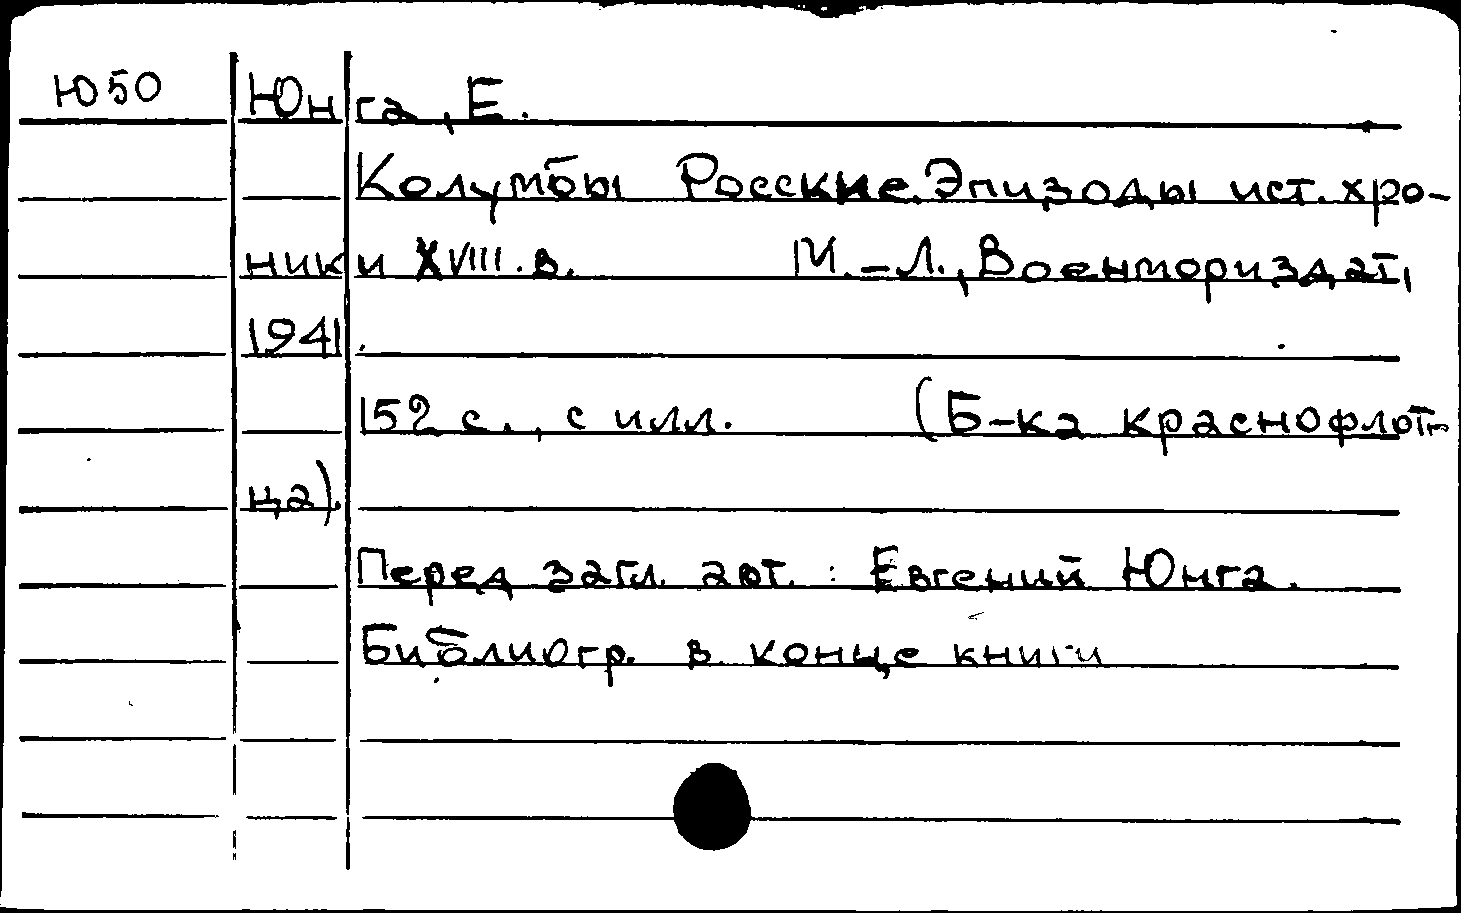 Ю50 Юнга, Е.
Колумбы Росские. Эпизоды ист. хро-
ники XVIII. в. М.-Л., Военмориздат,
1941.
152 с., с илл. (Б-ка краснофлот-
ца).
Перед загл. авт. : Евгений Юнга.
Библиогр. в конце книги